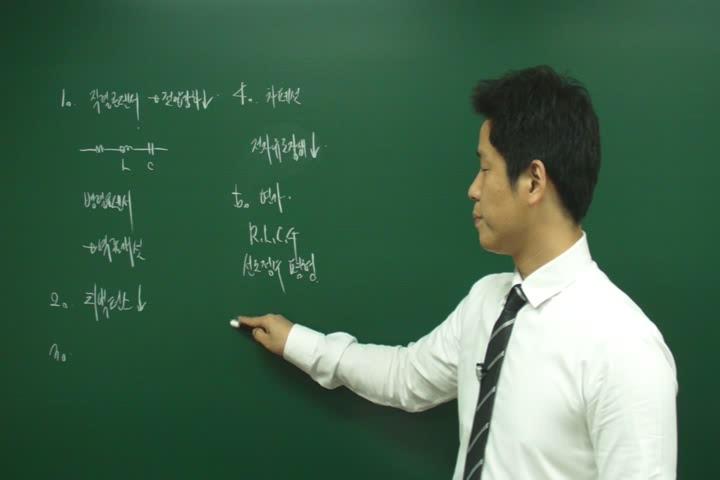 1. 직렬콘덴서 → 전압강하↓
L C
병렬콘덴서
→ 역률개선
2. 피뢰탄소↓
4. 차폐선
전자유도장해↓
5. 연가
R.L.C.G
선로정수 평형